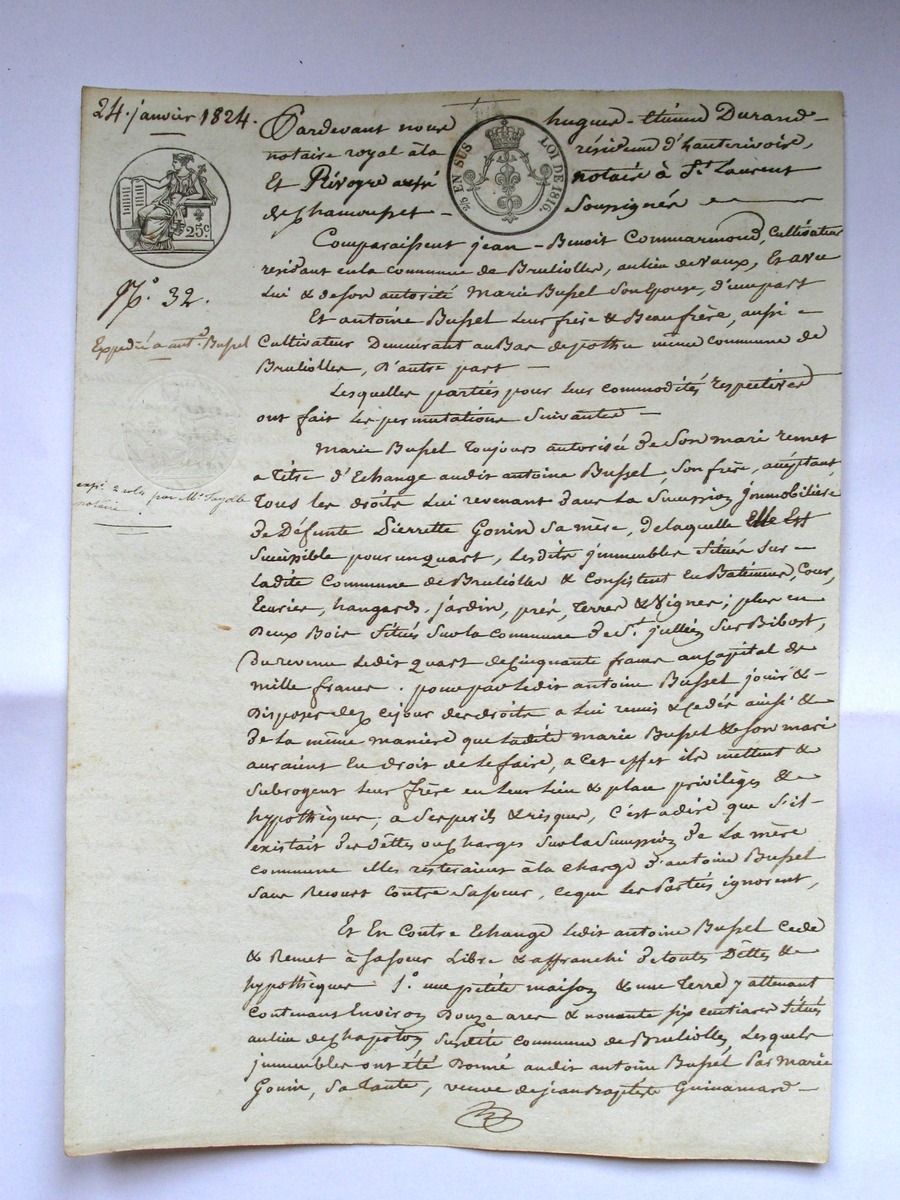 24. janvier 1824.
25c.
2/5 EN SUS
LOI DE 1816.
N.º 32.
Expédié a ant.e Bussel
expé 2 rolle par Me
notaire
Pardevant nous hugues-Etienne Durand
notaire royal à la résidence d'hauterivoire,
Et Rivoyre notaire à St. Laurent
de Chamousset - Soussignés
Comparaissent jean-Benoit Commarmond, Cultivateur
résidant en la commune de Brulliolles, au lieu de Vaux, Et avec
Lui & de son autorité Marie Bussel Son Epouse, d'une part
Et antoine Bussel Leur frère & Beaufrère, aussi
Cultivateur Demeurant au Bas de pothu même commune de
Brulliolles, D'autre part
Lesquelles parties pour Leur commodités respectives
ont fait Les permutations Suivantes
Marie Bussel Toujours autorisée de Son mari remet
a Titre d'Echange audit antoine Bussel, Son frère, acceptant
Tous les droits Lui revenant dans La Succession Immobilière
de Défunte Pierrette Gonin Sa mère, de laquelle Elle Est
Successible pour un quart, Lesdits immeubles Situés Sur
Ladite Commune de Brulliolles & Consistent en Batimens, Cour,
Ecuries, hangards, jardin, prés, Terres & Vignes; plus en
Deux Bois Situés Sur la Commune de St. jullien Sur Bibost,
Du revenu Ledit quart de Cinquante francs au Capital de
mille francs. pour par Ledit antoine Bussel jouir &
Disposer dez ce jour des droits a Lui remis & Cédés ainsi &
de la même manière que Ladite Marie Bussel & Son mari
auraient Eu droit de Le faire, a Cet effet ils mettent &
Subrogent Leur frère en Leur Lieu & place privilèges &
hypothèques, a Ses périls & risques, C'est a dire que S'il
existait des dettes ou Charges Sur la Succession de La mère
commune elles resteraient à la charge d'antoine Bussel
Sans Recours Contre Sa Soeur, Ce que Les Parties ignorent,
Et En Contre Echange Ledit antoine Bussel Cede
& Remet à Sa Soeur Libre & affranchi de toutes Dettes &
hypothèques 1.º une petite maison & une Terre y attenant
Contenant Environ Douze ares & nonante six centiares Situés
au lieu de Chapoton Susdite commune de Brulliolles, Lesquels
immeubles ont été Donné audit antoine Bussel Par Marie
Gonin, Sa Tante, veuve de jean Baptiste Guinamard